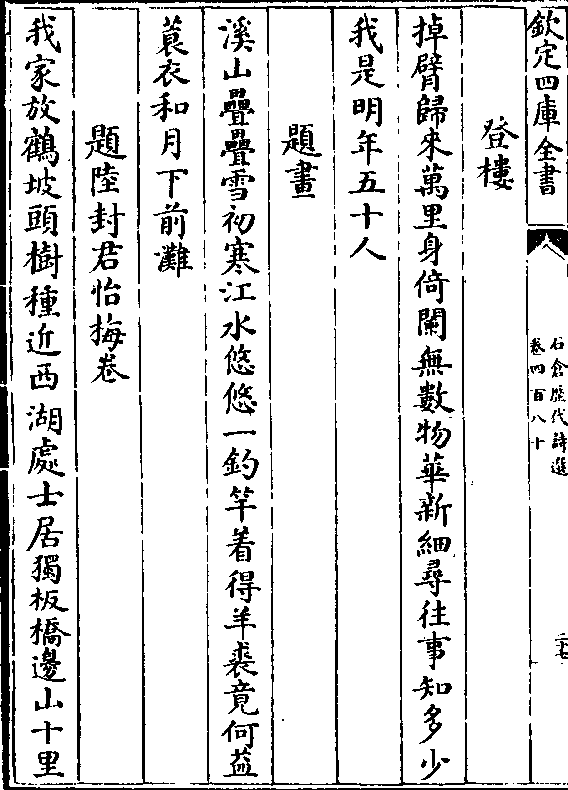 欽定四庫全書
石倉歷代詩選
卷四百八十
二十七
登樓
掉臂歸來萬里身倚闌無數物華新細尋往事知多少
我是明年五十人
題畫
溪山疊疊雪初寒江水悠悠一釣竿着得羊裘竟何益
蓑衣和月下前灘
題陸封君怡梅卷
我家放鶴坡頭樹種近西湖處士居獨板橋邊山十里